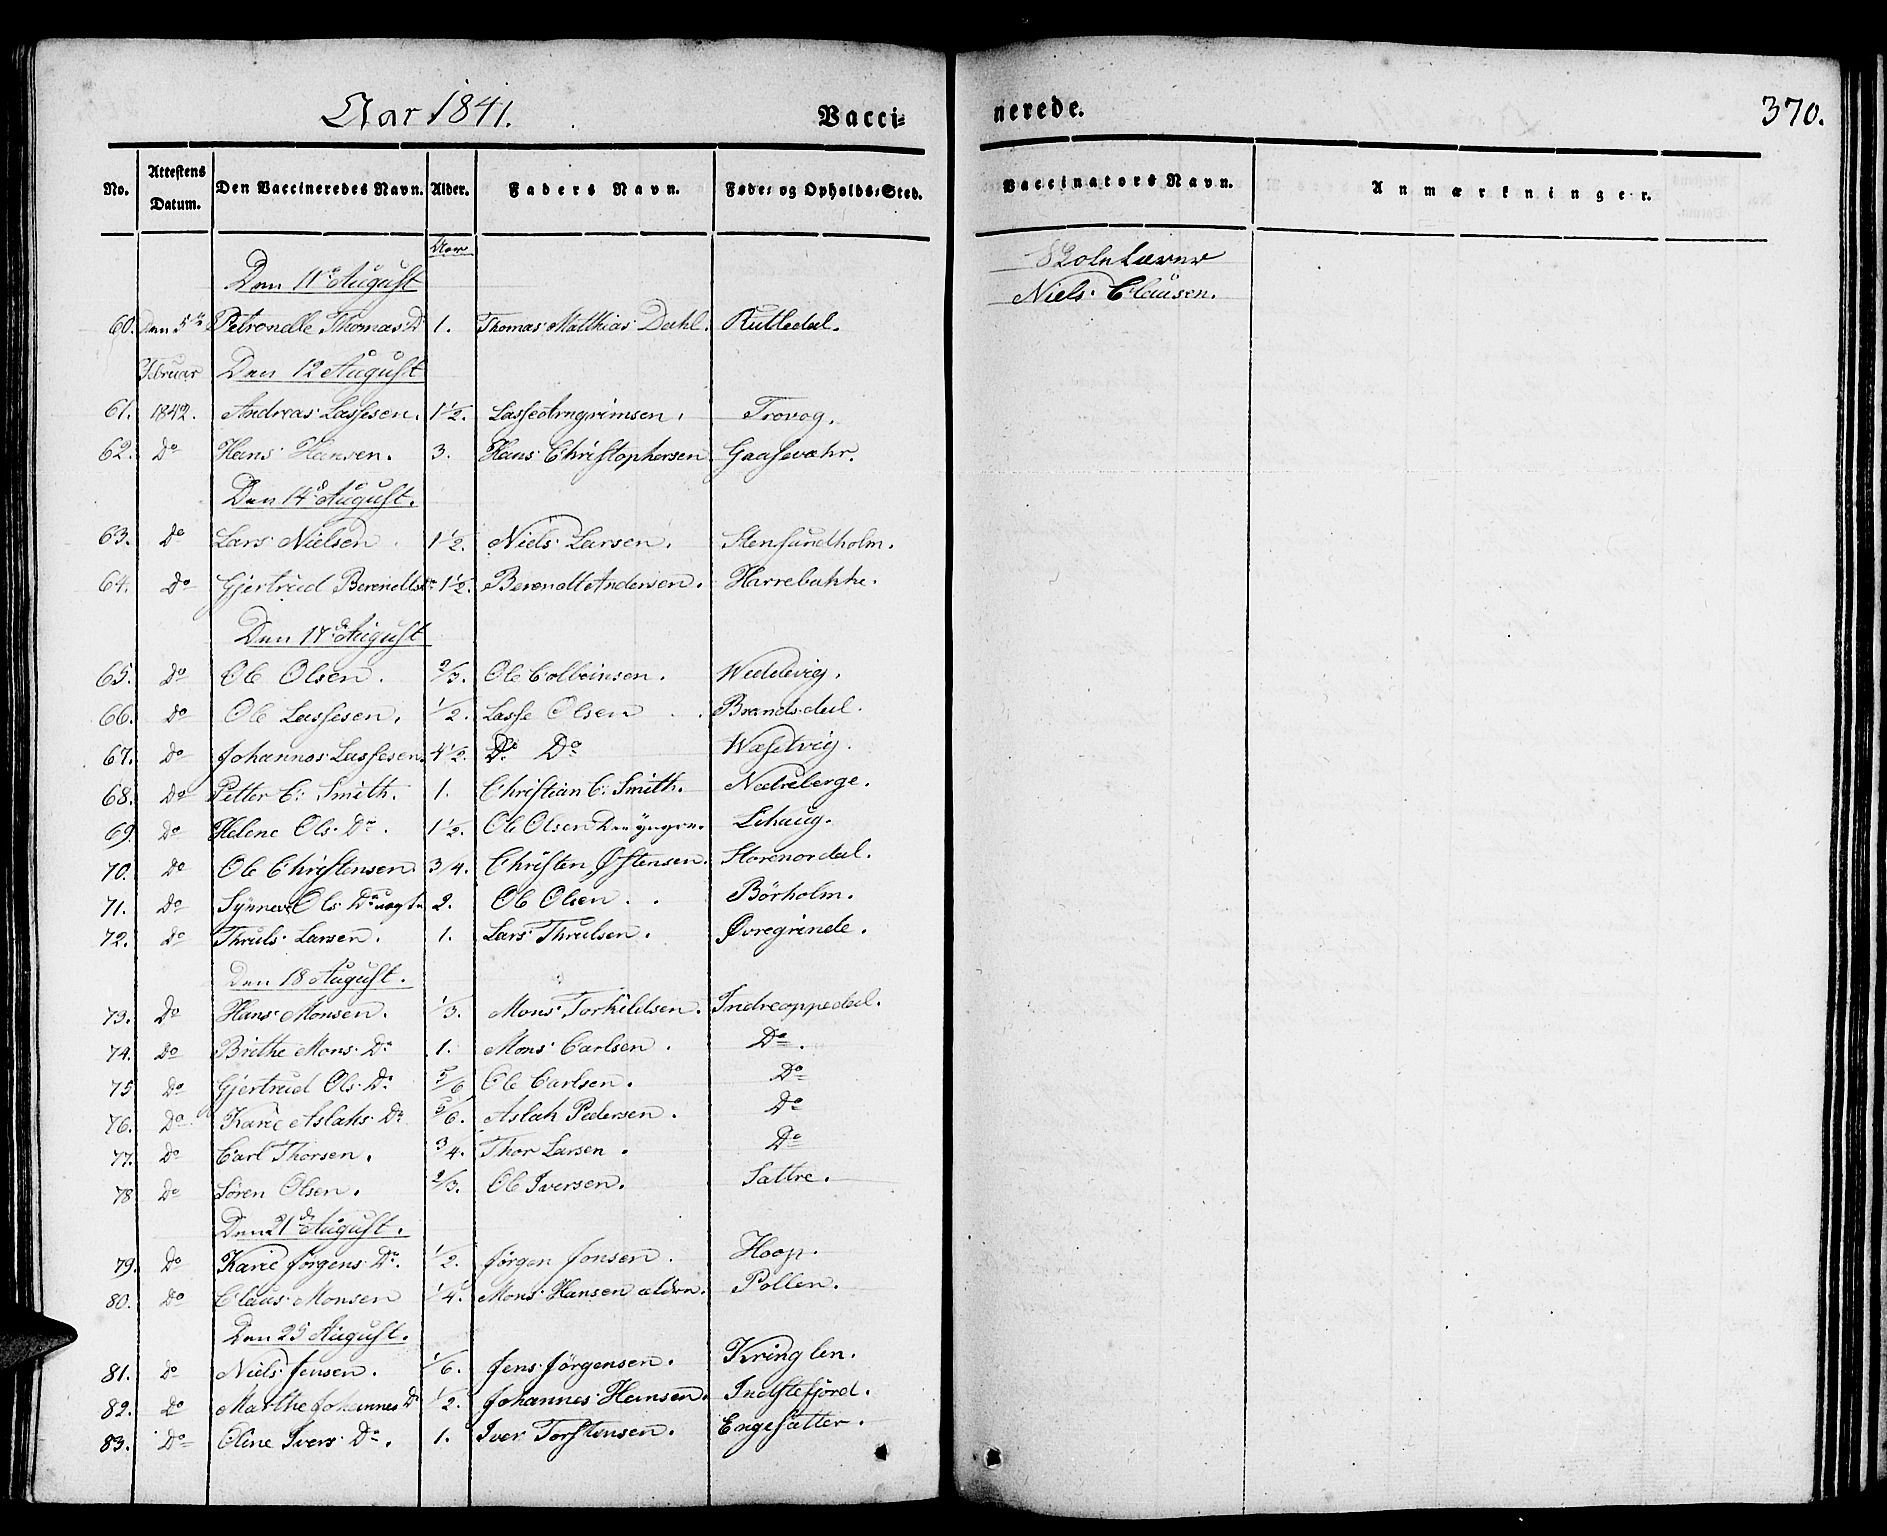 Aar 1841. Vacci- nerede. 370.
No. Attestens Datum. Den Vaccineredes Navn. Alder. Faders Navn. Føde- og Opholds-Sted. Vaccinators Navn. Anmærkninger.
Aar
Den 11te August Skolelærer
Niels Clausen.
60. Den 5te Petronelle Thomas D. 1. Thomas Matthias Dahl. Rutledal.
Februar Den 12 August
61. 1842. Andreas Lassesen. 1 1/2. Lasse Arngrimsen. Trovog.
62. Do Hans Hansen. 3. Hans Christophersen Gaasevær.
Den 14de August.
63. Do Lars Nielsen 1 1/2. Niels Larsen. Stensundholm.
64. Do Gjertrud Berendts Dr 1 1/2. Berendt Andersen. Harrebakke.
Den 17de August
65. Do Ole Olsen. 2/3. Ole Colbeinsen. Weddevig.
66. Do Ole Lassesen. 1/2. Lasse Olsen Brandsdal.
67. Do Johannes Lassesen. 4 1/2. Do Do Wæsetvig.
68. Do Petter C: Smith. 1. Christian C: Smith. Nedreberge.
69. Do Helene Ols. Dr. 1 1/2. Ole Olsen Den yngre. Lihaug.
70. Do Ole Christensen 3/4. Christen Østensen. Storenordal.
71. Do Synneve Ols. Dr 2. Ole Olsen. Börholm.
72. Do Thruls Larsen. 1. Lars Thrulsen. Øvregrinde.
Den 18 August.
73. Do Hans Monsen. 1/3. Mons Torkildsen. Indreoppedal.
74. Do Brithe Mons. Dr 1. Mons Carlsen. Do.
75 Do Gjertrud Ols. Dr 5/6 Ole Carlsen. Do
76. Do Karie Aslaks Dr 5/6. Aslak Pedersen. Do
77. Do Carl Thorsen. 3/4. Thor Larsen. Do
78 Do Sören Olsen. 2/3. Ole Iversen. Sattre.
Den 21de August.
79. Do Karie Jørgens Dr. 1/2. Jørgen Jonsen. Hoop.
80. Do Claus Monsen 1/4. Mons Hansen ældre. Pollen.
Den 25 August.
81. Do Niels Jensen. 1/6. Jens Jörgensen. Kringlen.
82. Do Marthe Johannes D 1/2. Johannes Hansen. Indstefjord.
83. Do Oline Ivers Dr. 1. Iver Torstensen. Engesætter.